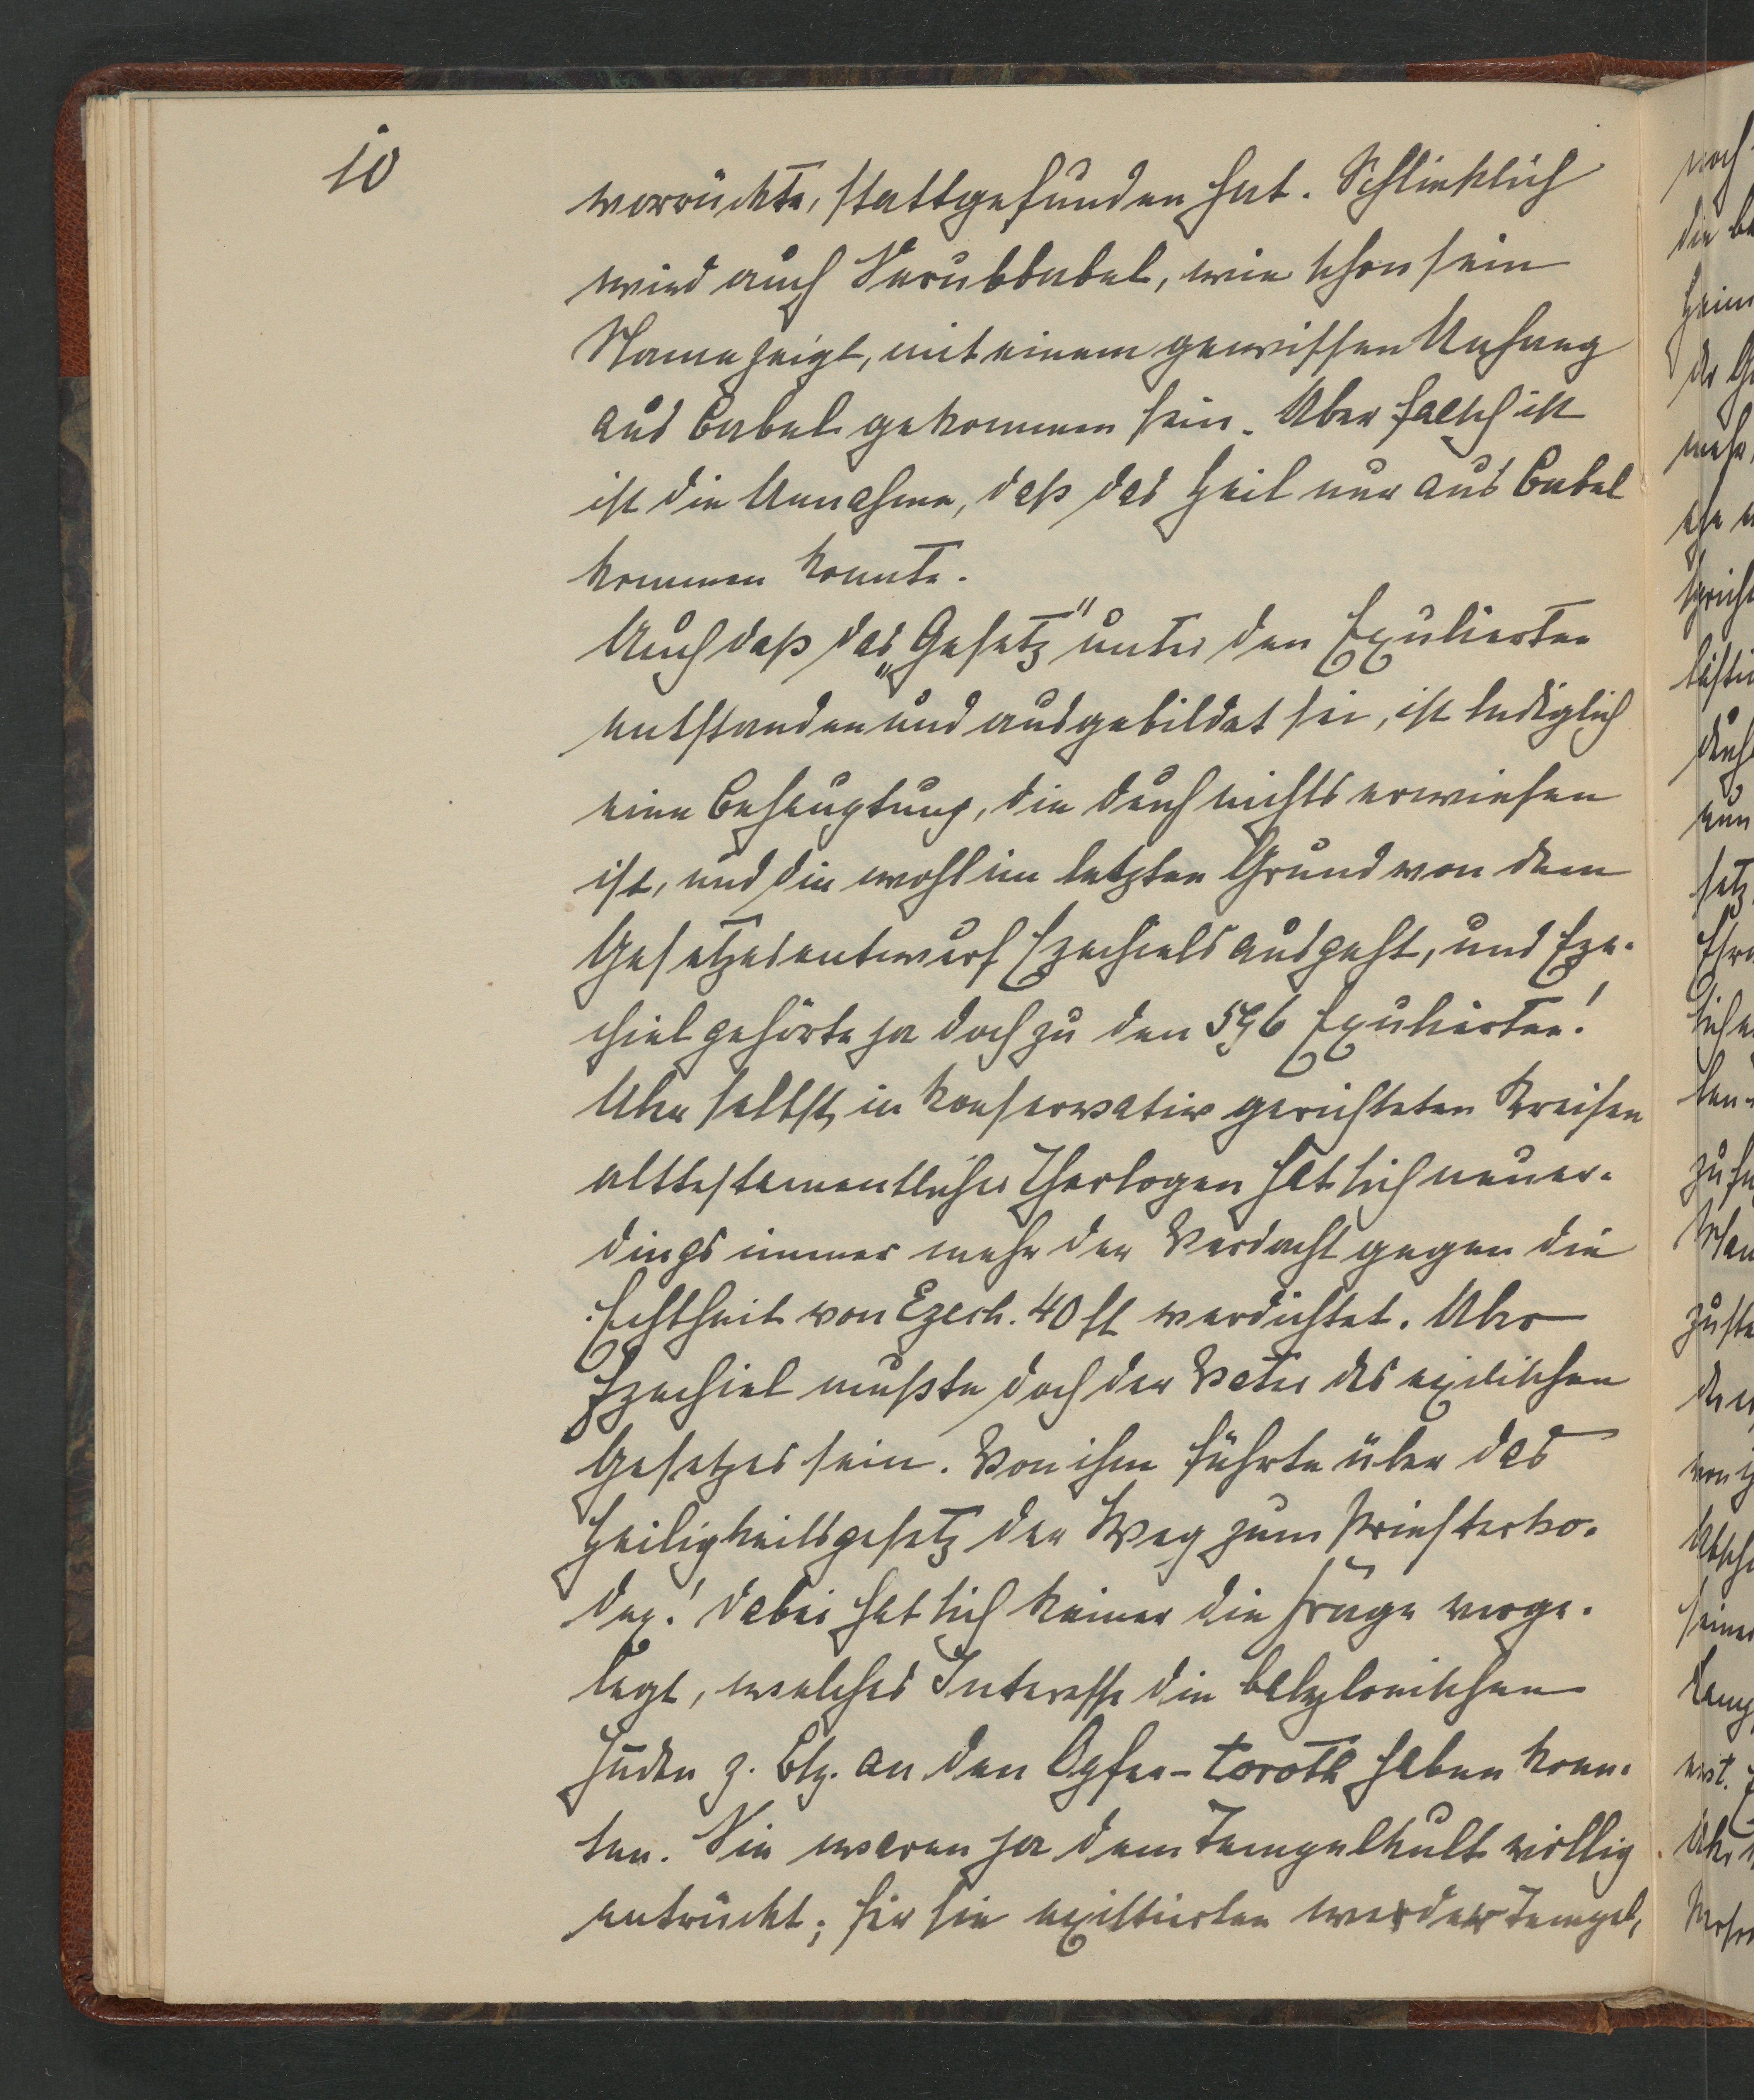 10
vorrückte, stattgefunden hat. Schließlich
wird auch Serubbabel, wie schon sein
Name zeigt, mit einem gewissen Anhang
aus Babel gekommen sein. Aber falsch ist
ist die Annahme, daß das Heil nur aus Babel
kommen konnte.
Auch daß das „Gesetz" unter den Exulierten
entstanden und ausgebildet sei, ist lediglich
eine Behauptung, die durch nichts erwiesen
ist, und die wohl im letzten Grund von dem
Gesetzesentwurf Ezechiels ausgeht, und Eze-
chiel gehörte ja doch zu den 596 Exulierten!
Aber selbst in konservativ gerichteten Kreisen
alttestamentlicher Theologen hat sich neuer-
dings immer mehr der Verdacht gegen die
Echtheit von Ezech. 40 ff verdichtet. Aber
Ezechiel mußte doch der Vater des exilischen
Gesetzes sein. Von ihm führte über das
Heiligkeitsgesetz der Weg zum Priesterko-
dex! Dabei hat sich keiner die Frage vorge-
legt, welches Interesse die babylonischen
Juden z. Bsp. an den Opfer-toroth haben konn-
ten. Sie waren ja dem Tempelkult völlig
entrückt; für sie existierten weder Tempel,